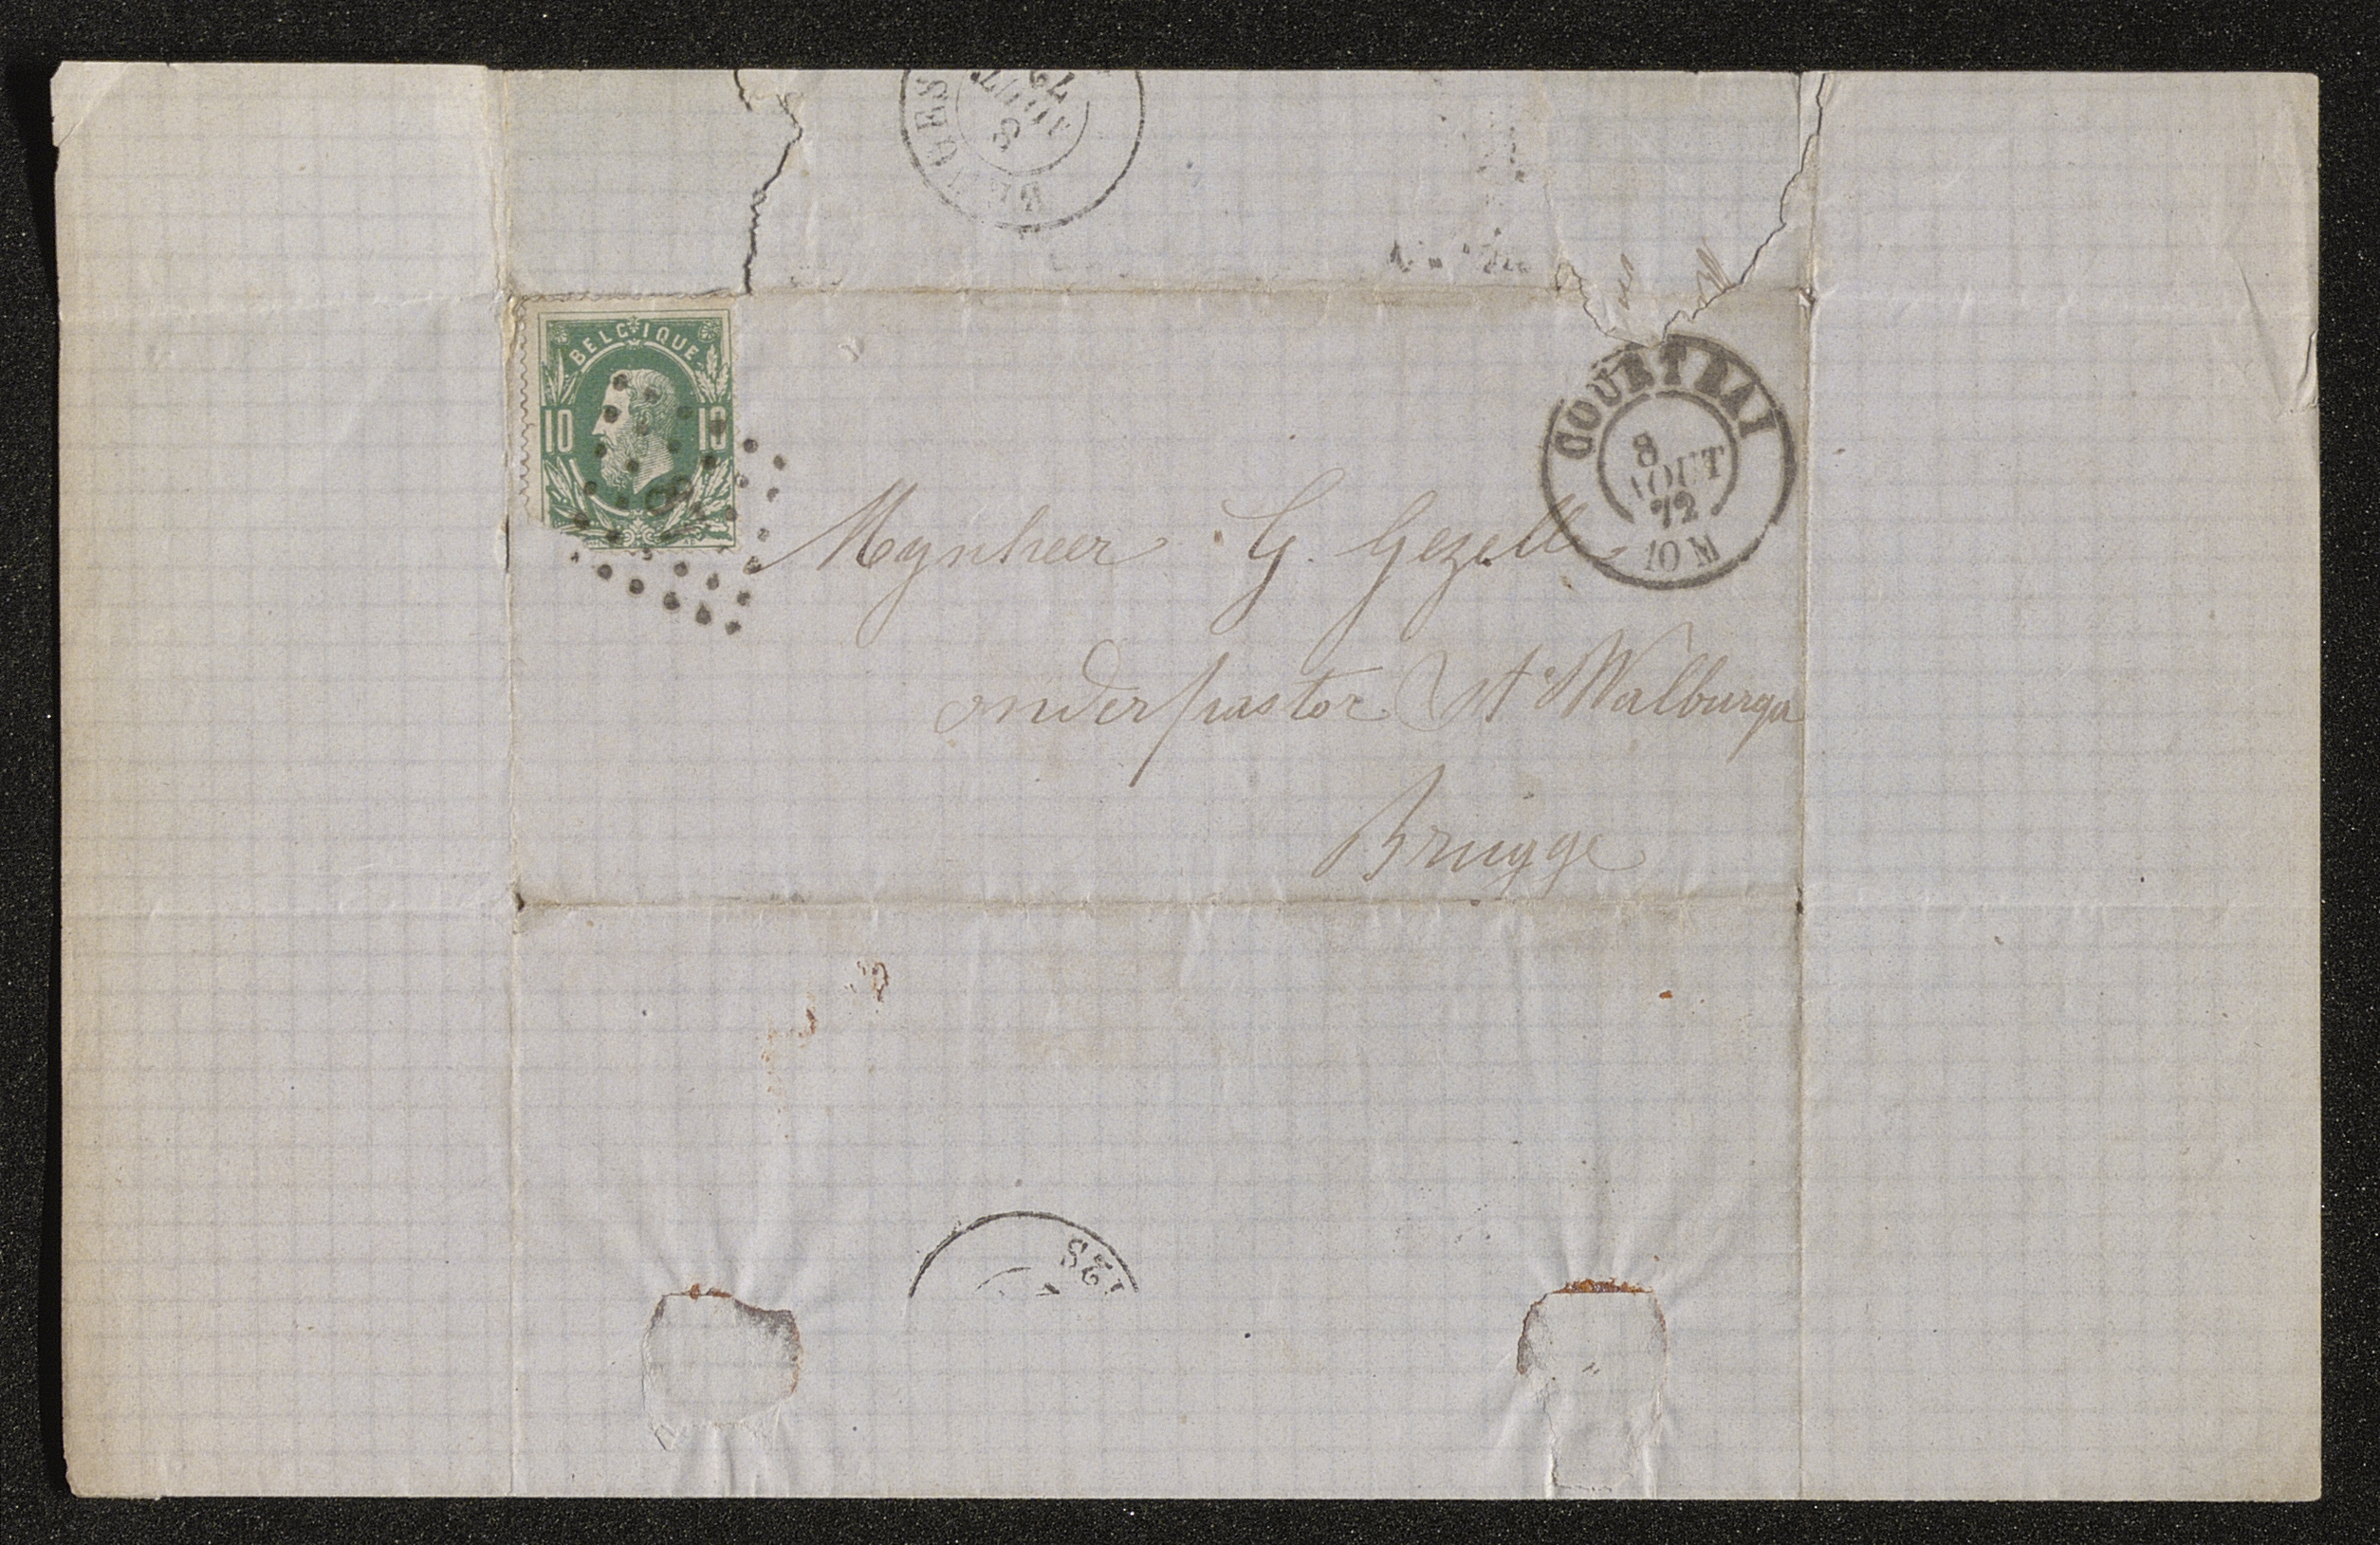 BRUGES
AOUT
72
BELGIQUE
10 10
COURTRAI
8
AOUT
72
10 M
Mynheer G. Gezelle
onderpastor St Walburga
Brugge